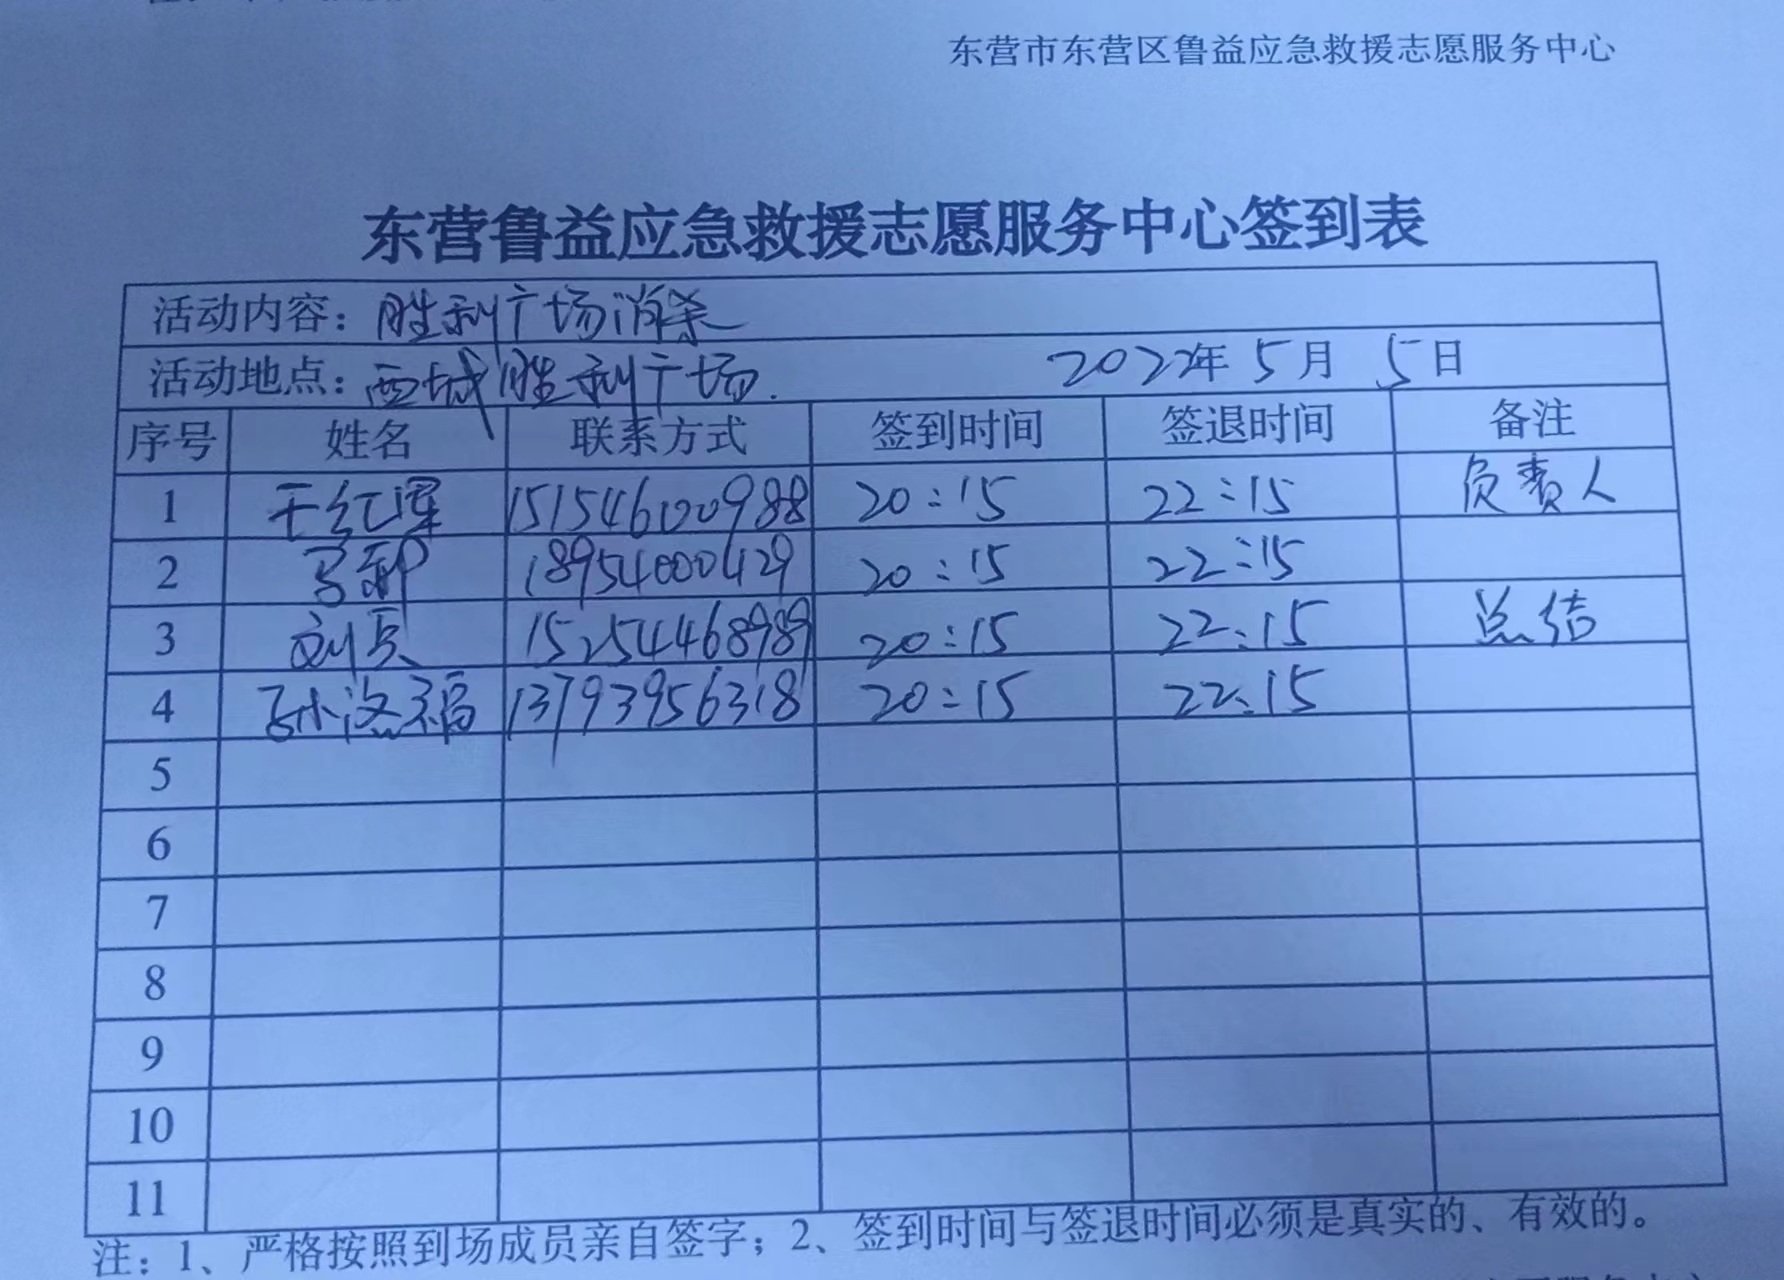 东营市东营区鲁益应急救援志愿服务中心
东营鲁益应急救援志愿服务中心签到表
活动内容：胜利广场消杀
活动地点：西城胜利广场. 2022年5月5日
序号 姓名 联系方式 签到时间 签退时间 备注
1 红军 15154600988 20:15 22:15 负责人
2 18954000429 20:15 22:15
3 刘兵 15254468989 20:15 22:15 总结
4 孙洛福 13793956318 20:15 22:15
5
6
7
8
9
10
11
注：1、严格按照到场成员亲自签字；2、签到时间与签退时间必须是真实的、有效的。